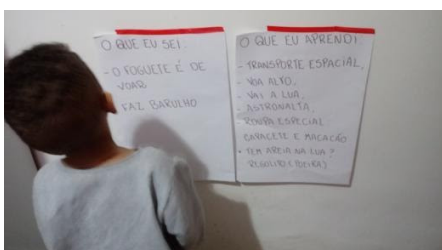 O QUE EU SEI:
- O FOGUETE É DE
VOAR
FAZ BARULHO
O QUE EU APRENDI:
- TRANSPORTE ESPACIAL,
- VOA ALTO,
- VAI A LUA,
- ASTRONALTA,
- ROUPA ESPECIAL
CAPACETE E MACACÃO
• TEM AREIA NA LUA?
REGOLITO (POEIRA)